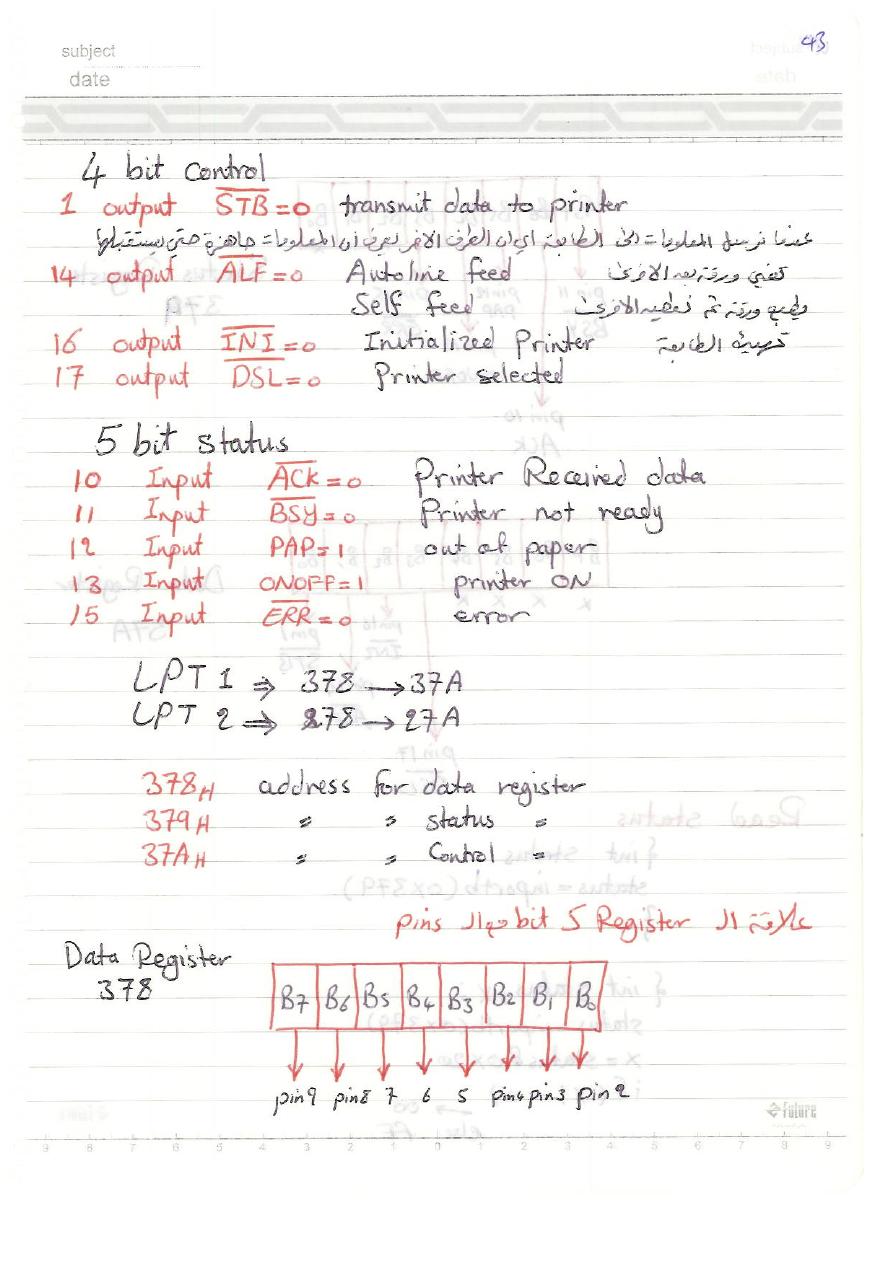 43
subject
date
4 bit Control
1 output STB=0 transmit data to printer
عندما نرسل المعلومات الى الطابعة اي ان الطرف الاخر يعرف ان المعلومات جاهزة حتى يستقبلها
14 output ALF=0 Autoline feed ورقة بعد الاخرى
Self feed ورقة ثم الاخرى
16 output INI=0 Initialized Printer تهيئة الطابعة
17 output DSL=0 Printer selected
5 bit status
10 Input ACK=0 Printer Received data
11 Input BSY=0 Printer not ready
12 Input PAP=1 out of paper
13 Input ONOFF=1 printer ON
15 Input ERR=0 error
LPT 1 ⇒ 378 → 37A
LPT 2 ⇒ 278 → 27A
378H address for data register
379H " " status "
37AH " " Control "
علاقة ال Register 5 bit مع ال pins
Data Register
378
B7 B6 B5 B4 B3 B2 B1 B0
pin9 pin8 7 6 5 pin4 pin3 pin2
future
9 8 7 6 5 4 3 2 1 0 1 2 3 4 5 6 7 8 9